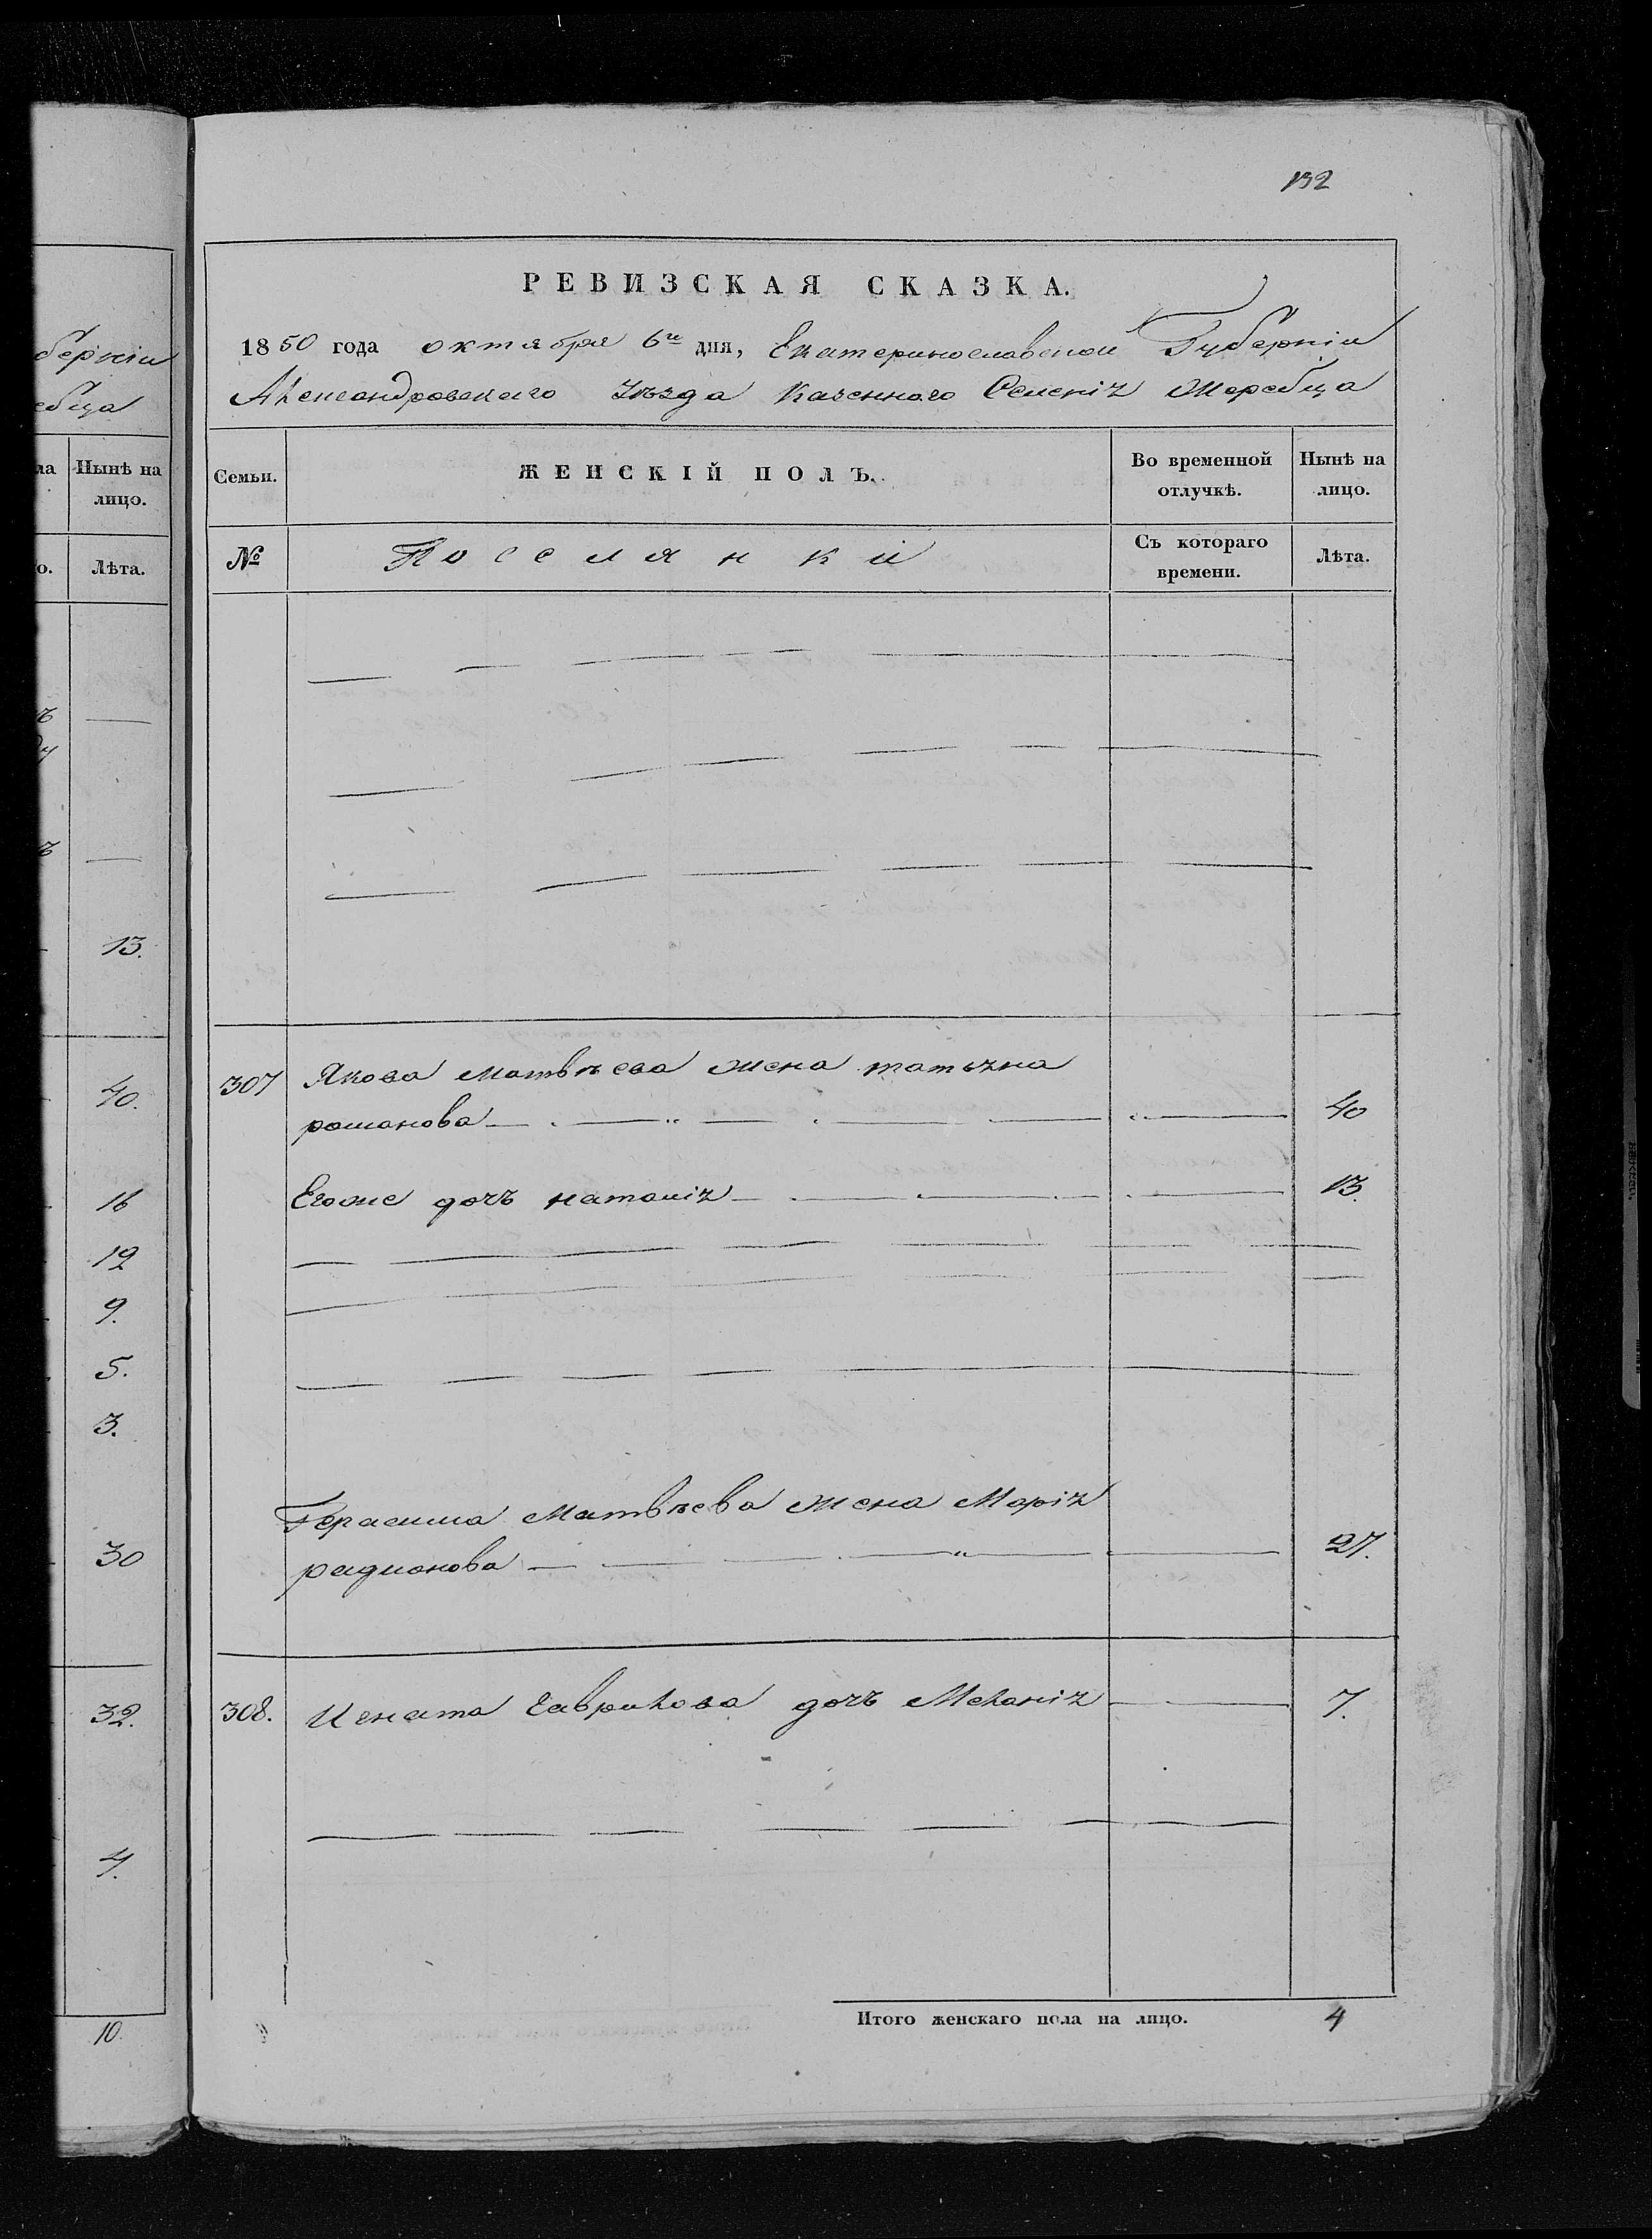 132
РЕВИЗСКАЯ СКАЗКА.
1850 года октября 6го дня, Екатеринославской Губерніи
Александровскаго Уѣзда Казенного Селенія Жеребца
Семьи.
ЖЕНСКІЙ ПОЛЪ.
Во временной отлучкѣ.
Нынѣ на лицо.
№
Поселянки
Съ котораго времени.
Лѣта.
307 Якова Матвѣева жена татьяна
романова 40
Егоже дочь наталія 13.
Герасима Матвѣева жена Марія
радионова 27.
308. Игната Гаврилова дочь Меланія 7.
Итого женскаго пола на лицо. 4
берніи
ебца
Нынѣ на
лицо.
Лѣта.
13.
40.
16
12
9.
5.
3.
30
32.
4.
10.